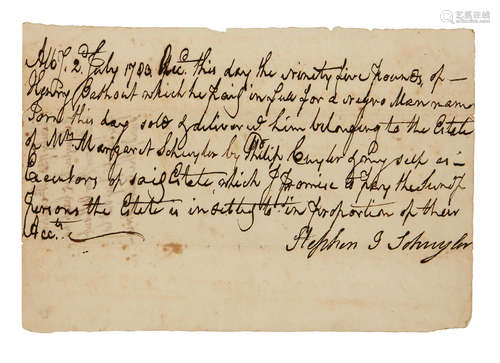 Alby 2d July 1780 Recd. this day the ninety five Pounds, of —
Henry Bashout which he paid in full for a Negro Man nam
Pom this day sold & deliver'd him belonging to the Estate
of Mrs Margaret Schuyler by Philip Cuyler & my self as —
Executors of said Estate which I promise to pay the sum of
Persons the Estate is indebted to in proportion of their
Acct.
Stephen J Schuyler